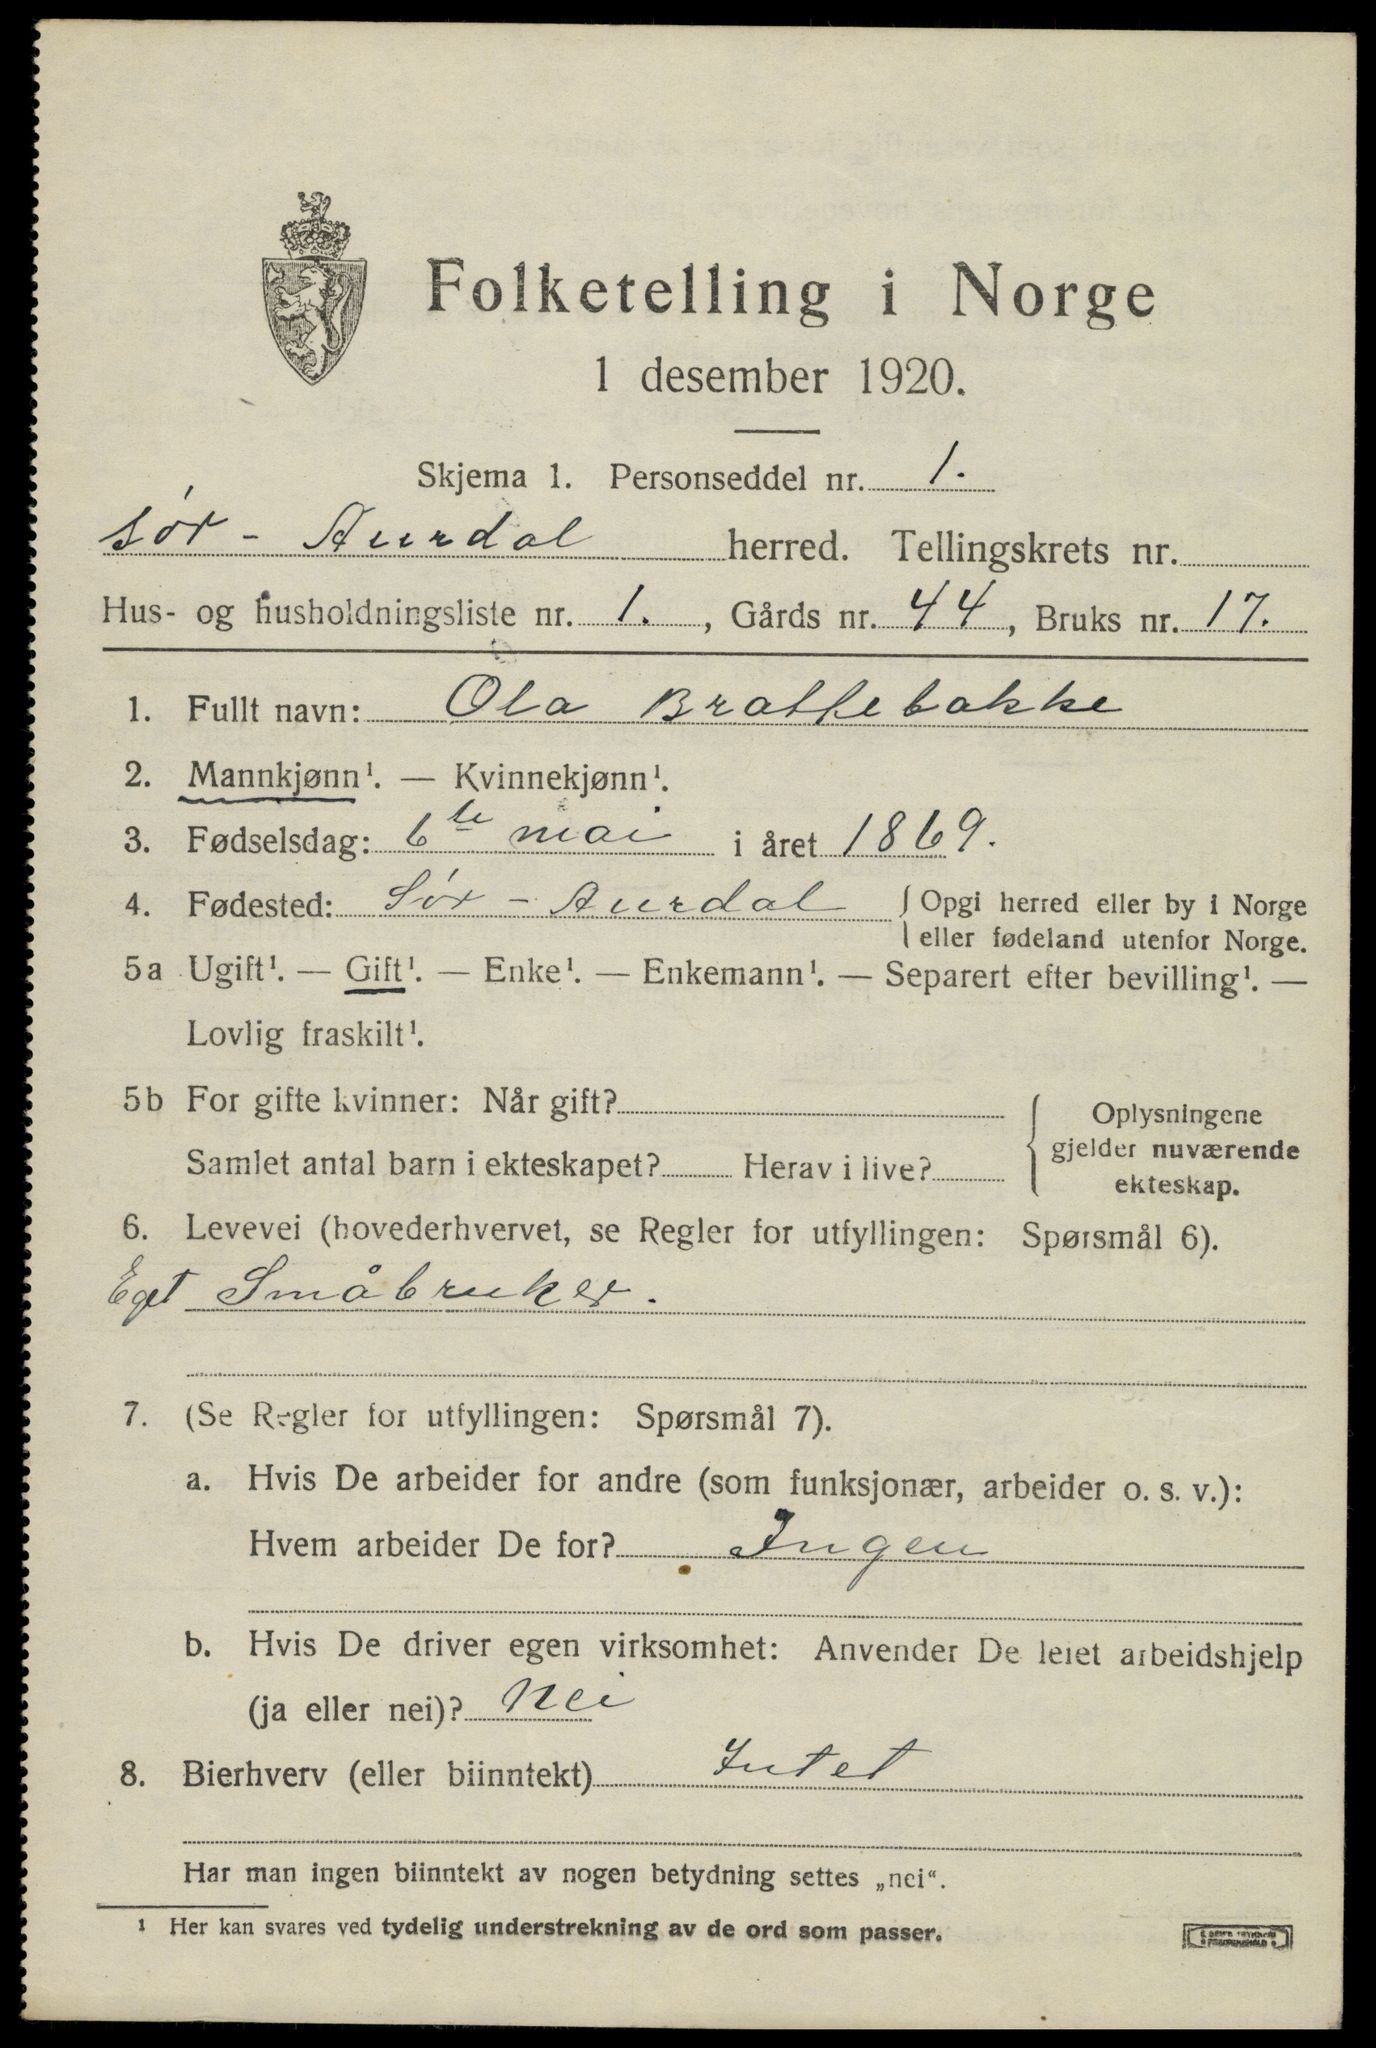 Folketelling i Norge
1 desember 1920.
Skjema 1. Personseddel nr. 1.
Sør - Aurdal herred. Tellingskrets nr.
Hus- og husholdningsliste nr. 1., Gårds nr. 44, Bruks nr. 17.
1. Fullt navn: Ola Brattebakke
2. Mannkjønn¹. — Kvinnekjønn¹.
3. Fødselsdag: 6te mai i året 1869.
4. Fødested: Sør - Aurdal { Opgi herred eller by i Norge
eller fødeland utenfor Norge.
5a Ugift¹. — Gift¹. — Enke¹. — Enkemann¹. — Separert efter bevilling¹. —
Lovlig fraskilt¹.
5b For gifte kvinner: Når gift?
Samlet antal barn i ekteskapet? Herav i live?
{ Oplysningene
gjelder nuværende
ekteskap.
6. Levevei (hovederhvervet, se Regler for utfyllingen: Spørsmål 6).
Eget Småbruker.
7. (Se Regler for utfyllingen: Spørsmål 7).
a. Hvis De arbeider for andre (som funksjonær, arbeider o. s. v.):
Hvem arbeider De for? Ingen
b. Hvis De driver egen virksomhet: Anvender De leiet arbeidshjelp
(ja eller nei)? Nei
8. Bierhverv (eller biinntekt) Intet
Har man ingen biinntekt av nogen betydning settes „nei“.
¹ Her kan svares ved tydelig understrekning av de ord som passer.